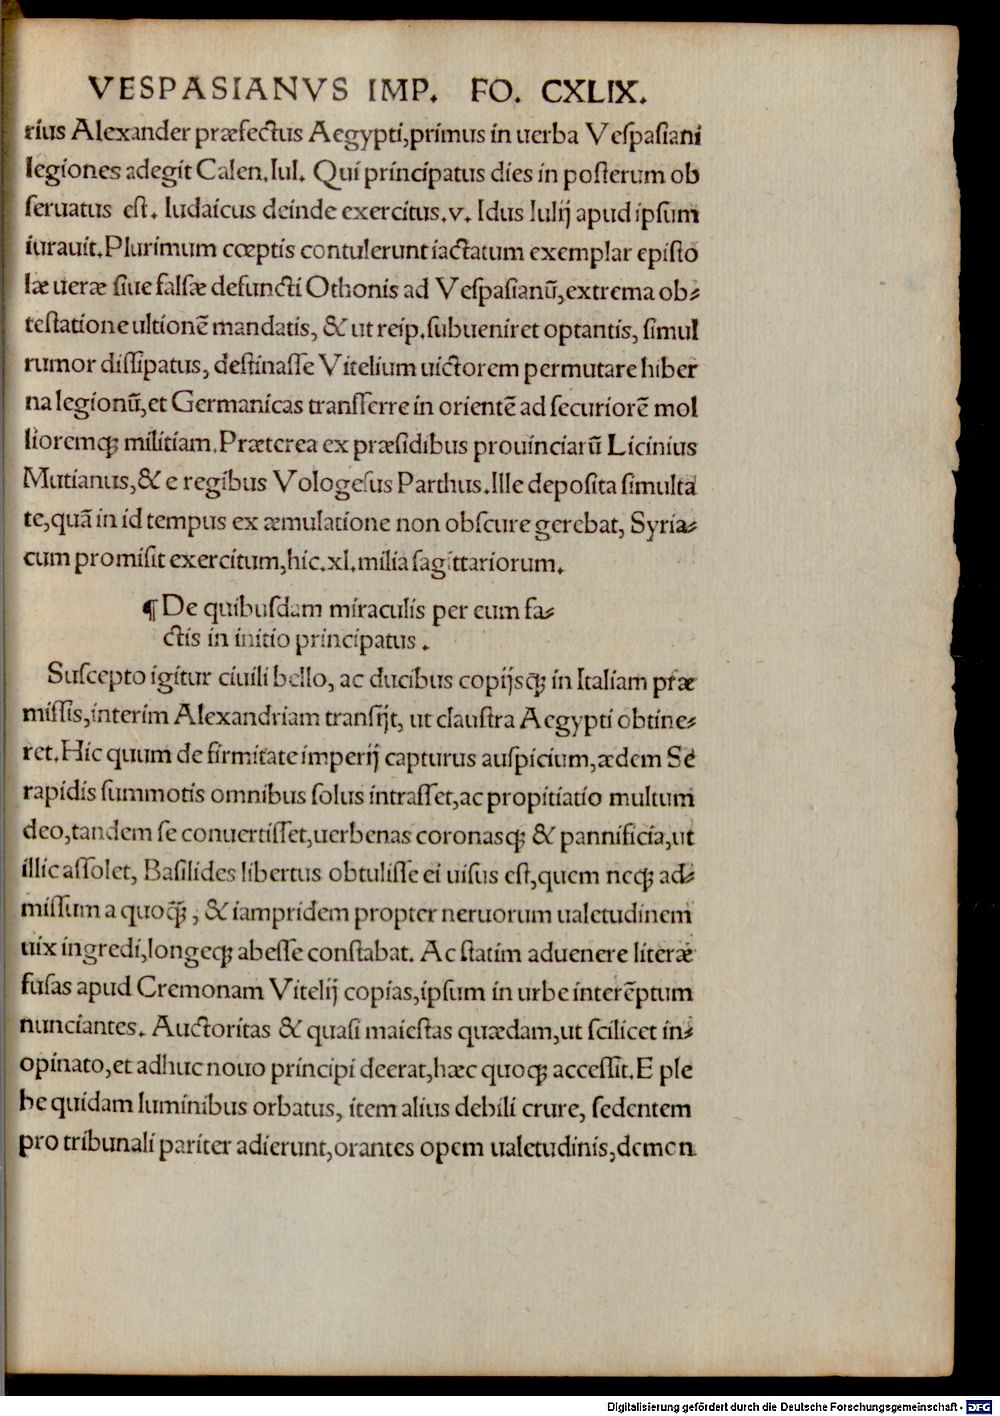 VESPASIANVS IMP. FO. CXLIX.
rius Alexander præfectus Aegypti,primus in uerba Veſpaſiani
legiones adegit Calen.Iul. Qui principatus dies in poſterum ob
ſeruatus eſt. Iudaicus deinde exercitus.v. Idus Iulij apud ipſum
iurauit.Plurimum cœptis contulerunt iactatum exemplar epiſto
læ ueræ ſiue falſæ defuncti Othonis ad Veſpaſianū,extrema ob⸗
teſtatione ultionē mandatis, & ut reip.ſubueniret optantis, ſimul
rumor diſſipatus, deſtinaſſe Vitelium uictorem permutare hiber
na legionū,et Germanicas tranſferre in orientē ad ſecuriorē mol
lioremqꝫ militiam.Præterea ex præſidibus prouinciarū Licinius
Mutianus,& e regibus Vologeſus Parthus.Ille depoſita ſimulta
te,quā in id tempus ex æmulatione non obſcure gerebat, Syria⸗
cum promiſit exercitum,hic.xl.milia ſagittariorum.
¶ De quibuſdam miraculis per eum fa⸗
ctis in initio principatus .
Suſcepto igitur ciuili bello, ac ducibus copijsqꝫ in Italiam præ
miſſis,interim Alexandriam tranſijt, ut clauſtra Aegypti obtine⸗
ret.Hic quum de firmitate imperij capturus auſpicium,ædem Se
rapidis ſummotis omnibus ſolus intraſſet,ac propitiatio multum
deo,tandem ſe conuertiſſet,uerbenas coronasqꝫ & pannificia,ut
illic aſſolet, Baſilides libertus obtuliſſe ei uiſus eſt,quem neqꝫ ad⸗
miſſum a quoqꝫ̄ , & iampridem propter neruorum ualetudinem
uix ingredi,longeqꝫ abeſſe conſtabat. Ac ſtatim aduenere literæ
fuſas apud Cremonam Vitelij copias,ipſum in urbe interēptum
nunciantes. Auctoritas & quaſi maieſtas quædam,ut ſcilicet in⸗
opinato,et adhuc nouo principi deerat,hæc quoqꝫ acceſſit.E ple
be quidam luminibus orbatus, item alius debili crure, ſedentem
pro tribunali pariter adierunt,orantes opem ualetudinis,demon
Digitalisierung gefördert durch die Deutsche Forschungsgemeinschaft - DFG